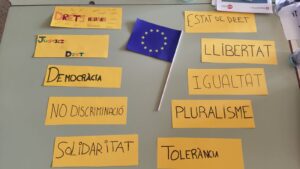 DRETS
JUSTÍCI
DRET
DEMOCRÀCIA
NO DISCRIMINACIÓ
SOLIDARITAT
ESTAT DE DRET
LLIBERTAT
IGUALTAT
PLURALISME
TOLERÀNCIA